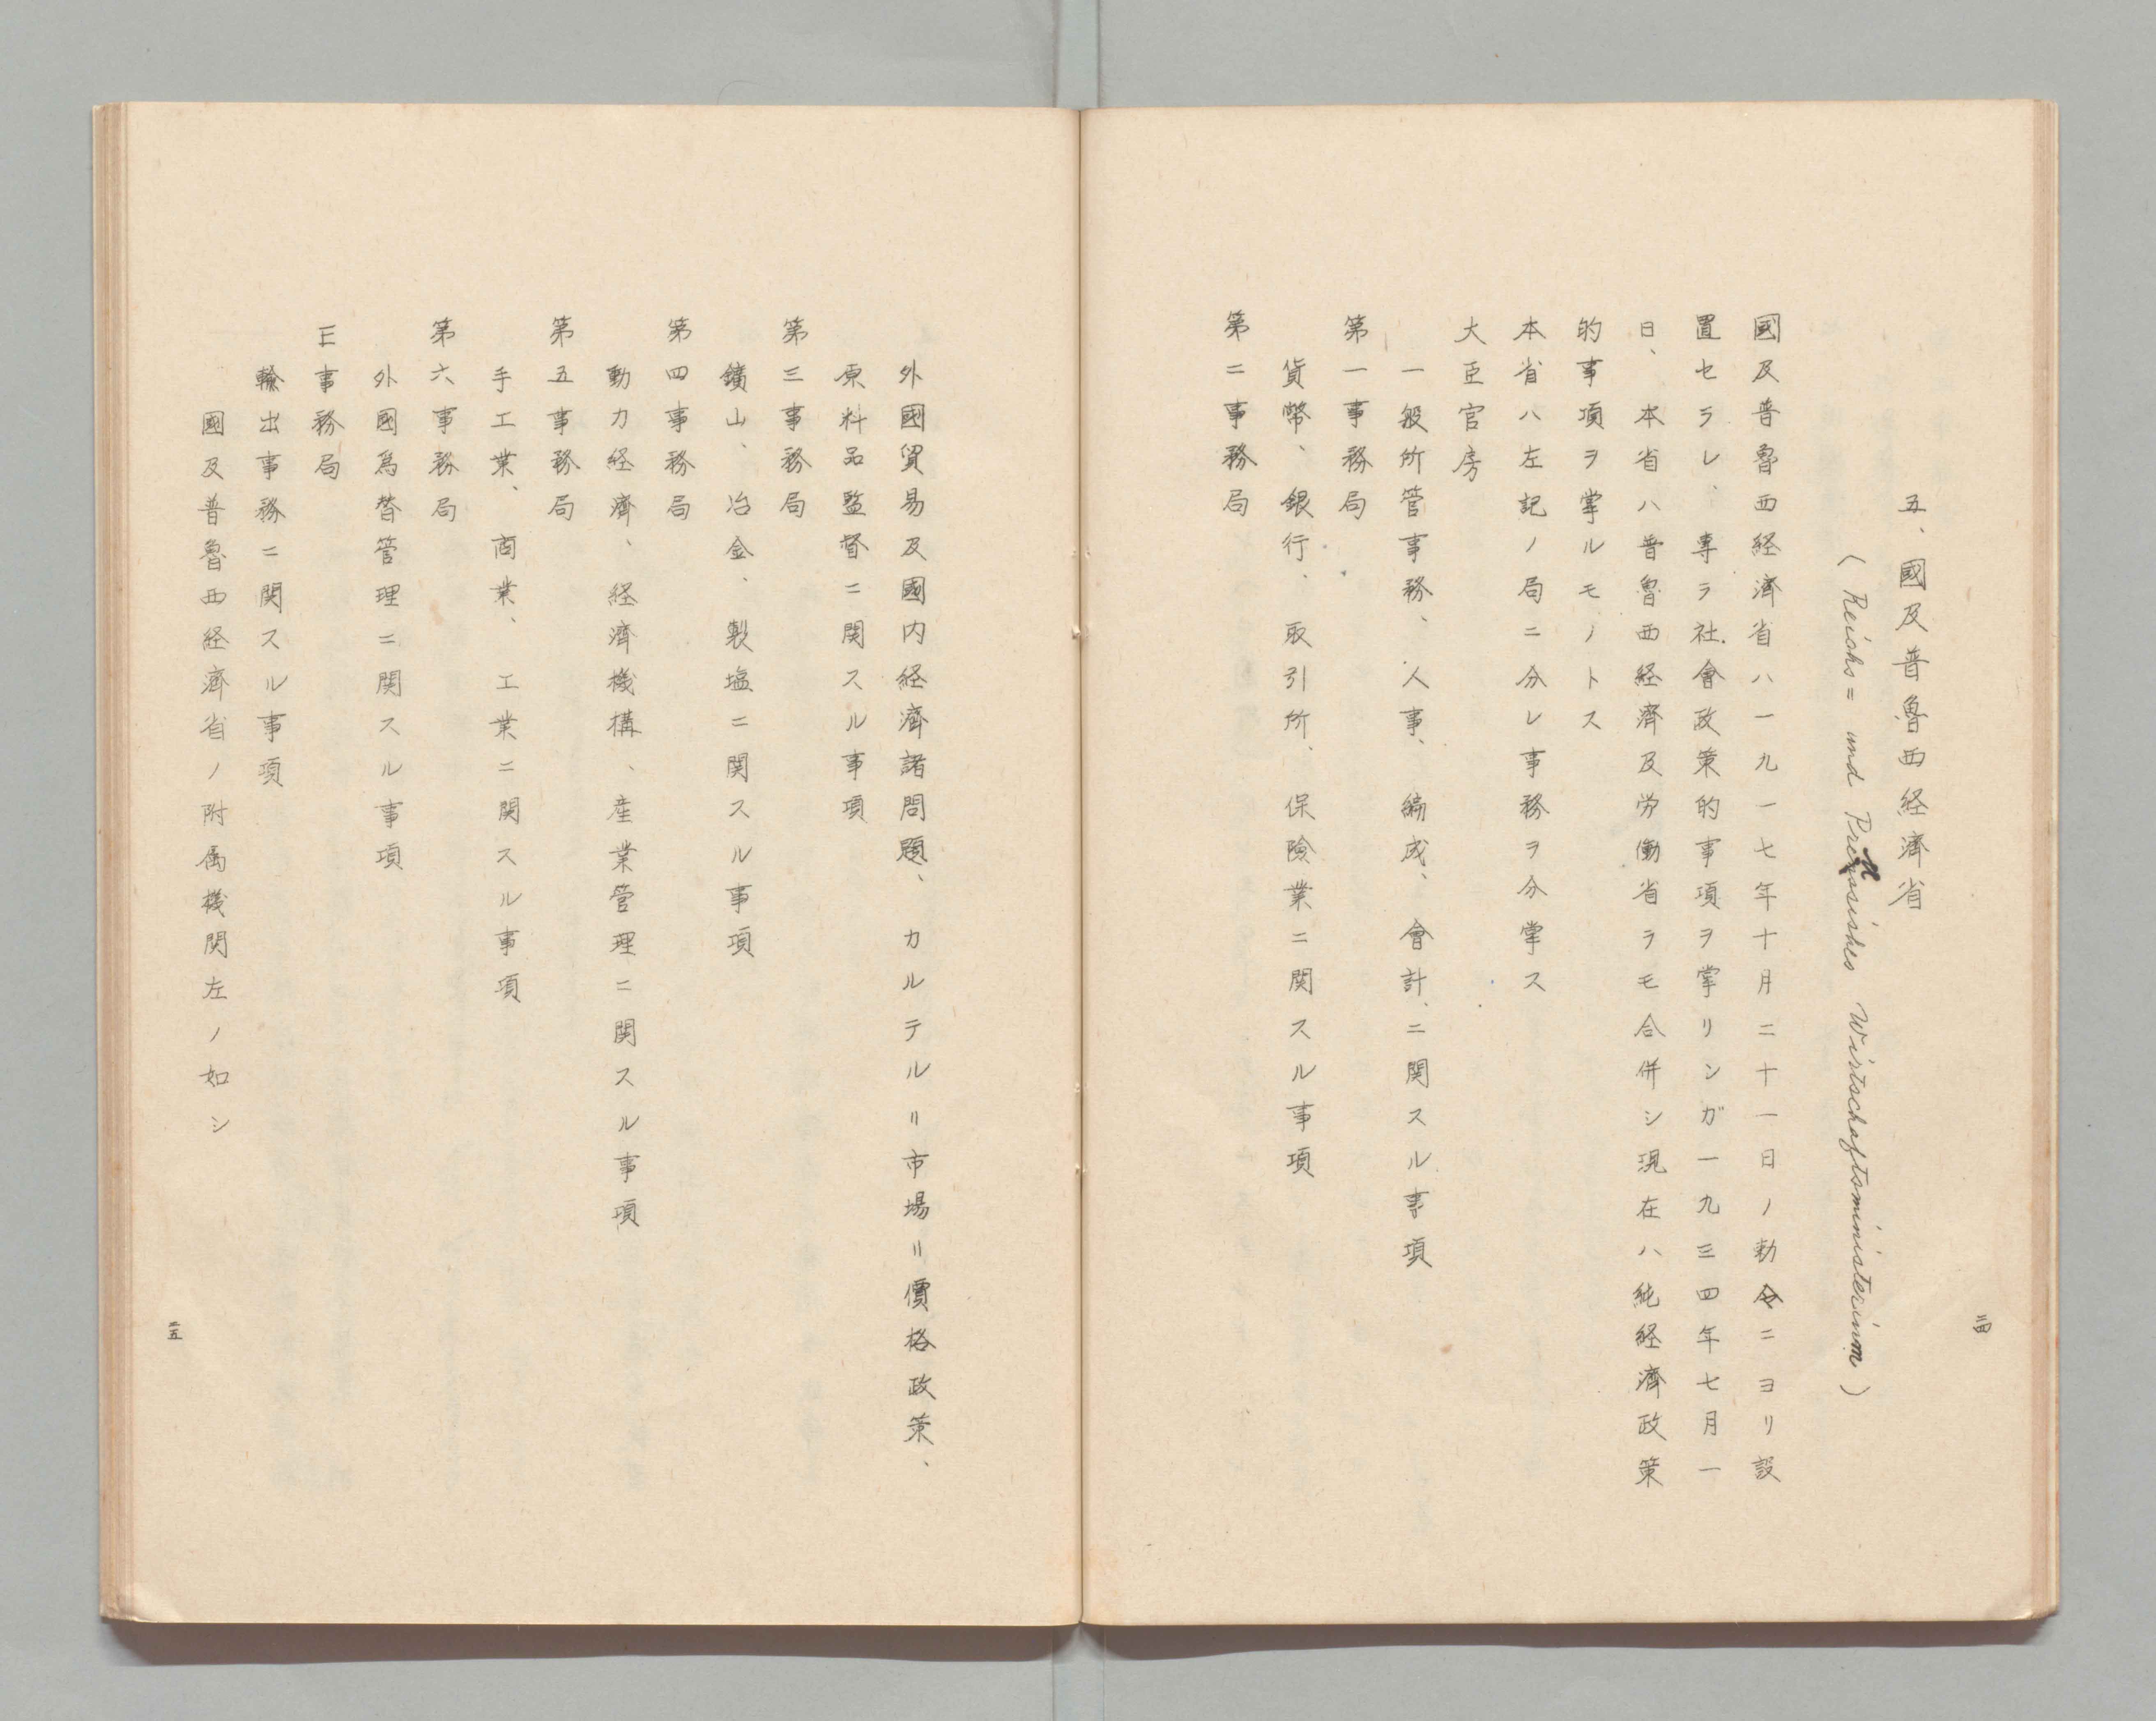 五、國及普魯西経済省
(Reichs= und Preussishes Wirtschaftsministerium)
國及普魯西経済省ハ一九一七年十月二十一日ノ勅令ニヨリ設
置セラレ、専ラ社會政策的事項ヲ掌リシガ一九三四年七月一
日、本省ハ普魯西経済及労働省ラモ合併シ現在ハ純経済政策
的事項ヲ掌ルモノトス
本省ハ左記ノ局ニ分レ事務ヲ分掌ス
大臣官房
一般所管事務、人事、編成、會計、ニ関スル事項
第一事務局
貨幣、銀行、取引所、保險業ニ関スル事項
第二事務局
二四
外國貿易及國内経済諸問題、カルテル〃市場〃價格政策、
原料品監督ニ関スル事項
第三事務局
鑛山、冶金、製塩ニ関スル事項
第四事務局
動力経済、経済機構、産業管理ニ関スル事項
第五事務局
手工業、商業、工業ニ関スル事項
第六事務局
外國為替管理ニ関スル事項
E事務局
輸出事務ニ関スル事項
國及普魯西経済省ノ附属機関左ノ如シ
二五